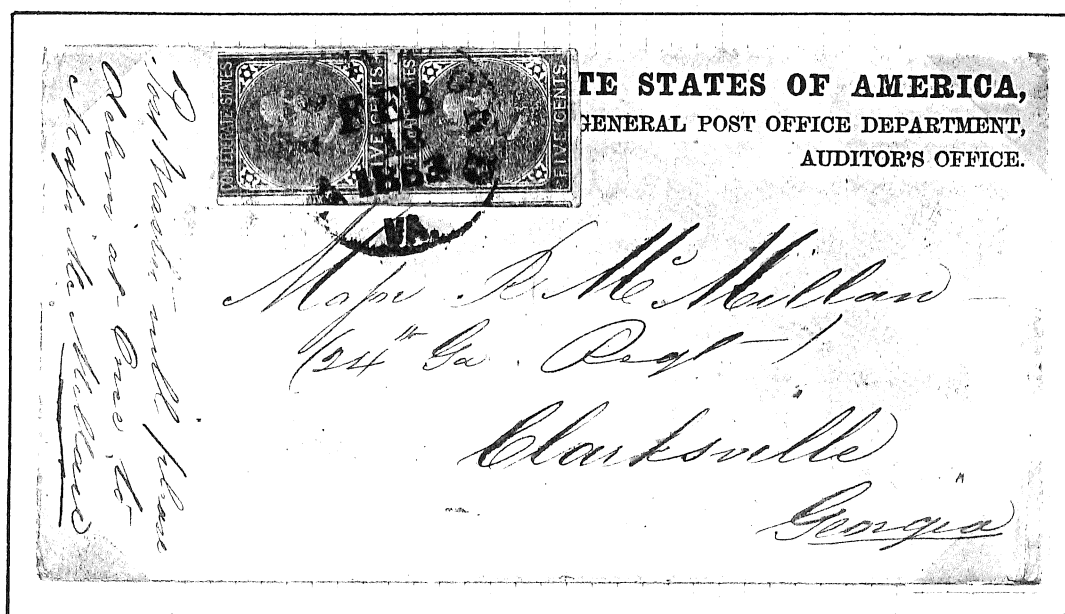 CONFEDERATE STATES
FIVE CENTS
FIVE CENTS
FEB
VA.
TE STATES OF AMERICA,
GENERAL POST OFFICE DEPARTMENT,
AUDITOR'S OFFICE.
Majr R Mc Millan —
(24th Ga. Regt—)
Clarksville
Georgia
Postmaster will please
deliver at Once to
Majr Mc Millan